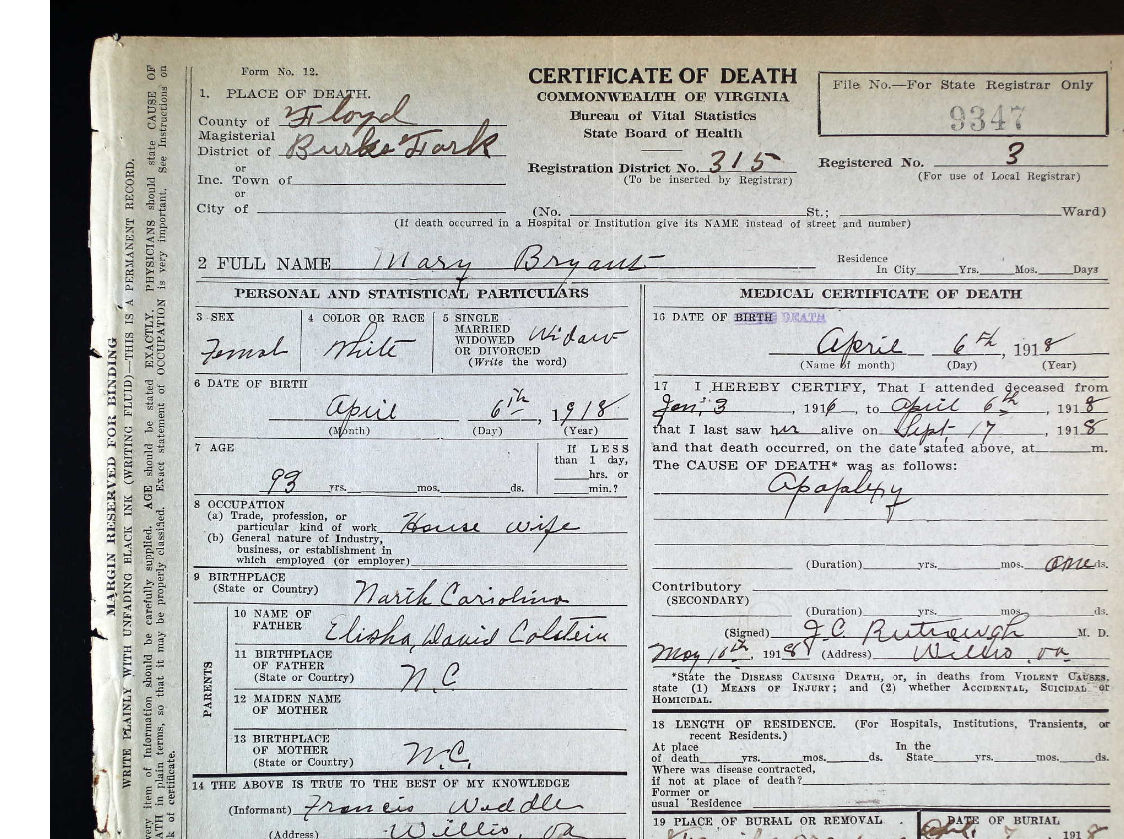 Form No. 12.
CERTIFICATE OF DEATH
COMMONWEALTH OF VIRGINIA
Bureau of Vital Statistics
State Board of Health
File No.—For State Registrar Only
9347
1. PLACE OF DEATH.
County of Floyd
Magisterial
District of Burks Fork
or
Inc. Town of
or
City of
Registration District No. 315
(To be inserted by Registrar)
Registered No. 3
(For use of Local Registrar)
(No. St.; Ward)
(If death occurred in a Hospital or Institution give its NAME instead of street and number)
2 FULL NAME Mary Bryant
Residence
In City Yrs. Mos. Days
PERSONAL AND STATISTICAL PARTICULARS
3 SEX
Femal
4 COLOR OR RACE
White
5 SINGLE
MARRIED
WIDOWED
OR DIVORCED
(Write the word)
Widow
6 DATE OF BIRTH
April 6th, 1918
(Month) (Day) (Year)
7 AGE
93 yrs. mos. ds.
If LESS
than 1 day,
hrs. or
min.?
8 OCCUPATION
(a) Trade, profession, or
particular kind of work House wife
(b) General nature of Industry,
business, or establishment in
which employed (or employer)
9 BIRTHPLACE
(State or Country) North Cariolina
PARENTS
10 NAME OF
FATHER Elisha David
11 BIRTHPLACE
OF FATHER
(State or Country) N.C
12 MAIDEN NAME
OF MOTHER
13 BIRTHPLACE
OF MOTHER
(State or Country) N.C.
14 THE ABOVE IS TRUE TO THE BEST OF MY KNOWLEDGE
(Informant) Francis Weddle
(Address) Willis, va
MEDICAL CERTIFICATE OF DEATH
16 DATE OF BIRTH DEATH
April 6th, 1918
(Name of month) (Day) (Year)
17 I HEREBY CERTIFY, That I attended deceased from
Jan, 3, 1916, to April 6th, 1918
that I last saw her alive on Sept. 17, 1918
and that death occurred, on the date stated above, at m.
The CAUSE OF DEATH* was as follows:
Apoplexy
(Duration) yrs. mos. one ds.
Contributory
(SECONDARY)
(Duration) yrs. mos. ds.
(Signed) J.C. M. D.
May 10th, 1918 (Address) Willis, va
*State the DISEASE CAUSING DEATH, or, in deaths from VIOLENT CAUSES,
state (1) MEANS OF INJURY; and (2) whether ACCIDENTAL, SUICIDAL or
HOMICIDAL.
18 LENGTH OF RESIDENCE. (For Hospitals, Institutions, Transients, or
recent Residents.)
At place
of death yrs. mos. ds.
In the
State yrs. mos. ds.
Where was disease contracted,
if not at place of death?
Former or
usual Residence
19 PLACE OF BURIAL OR REMOVAL
DATE OF BURIAL
191
MARGIN RESERVED FOR BINDING
WRITE PLAINLY WITH UNFADING BLACK INK (WRITING FLUID)—THIS IS A PERMANENT RECORD.
very item of Information should be carefully supplied. AGE should be stated EXACTLY. PHYSICIANS should state CAUSE OF
ATH in plain terms, so that it may be properly classified. Exact statement of OCCUPATION is very important. See Instructions on
k of certificate.